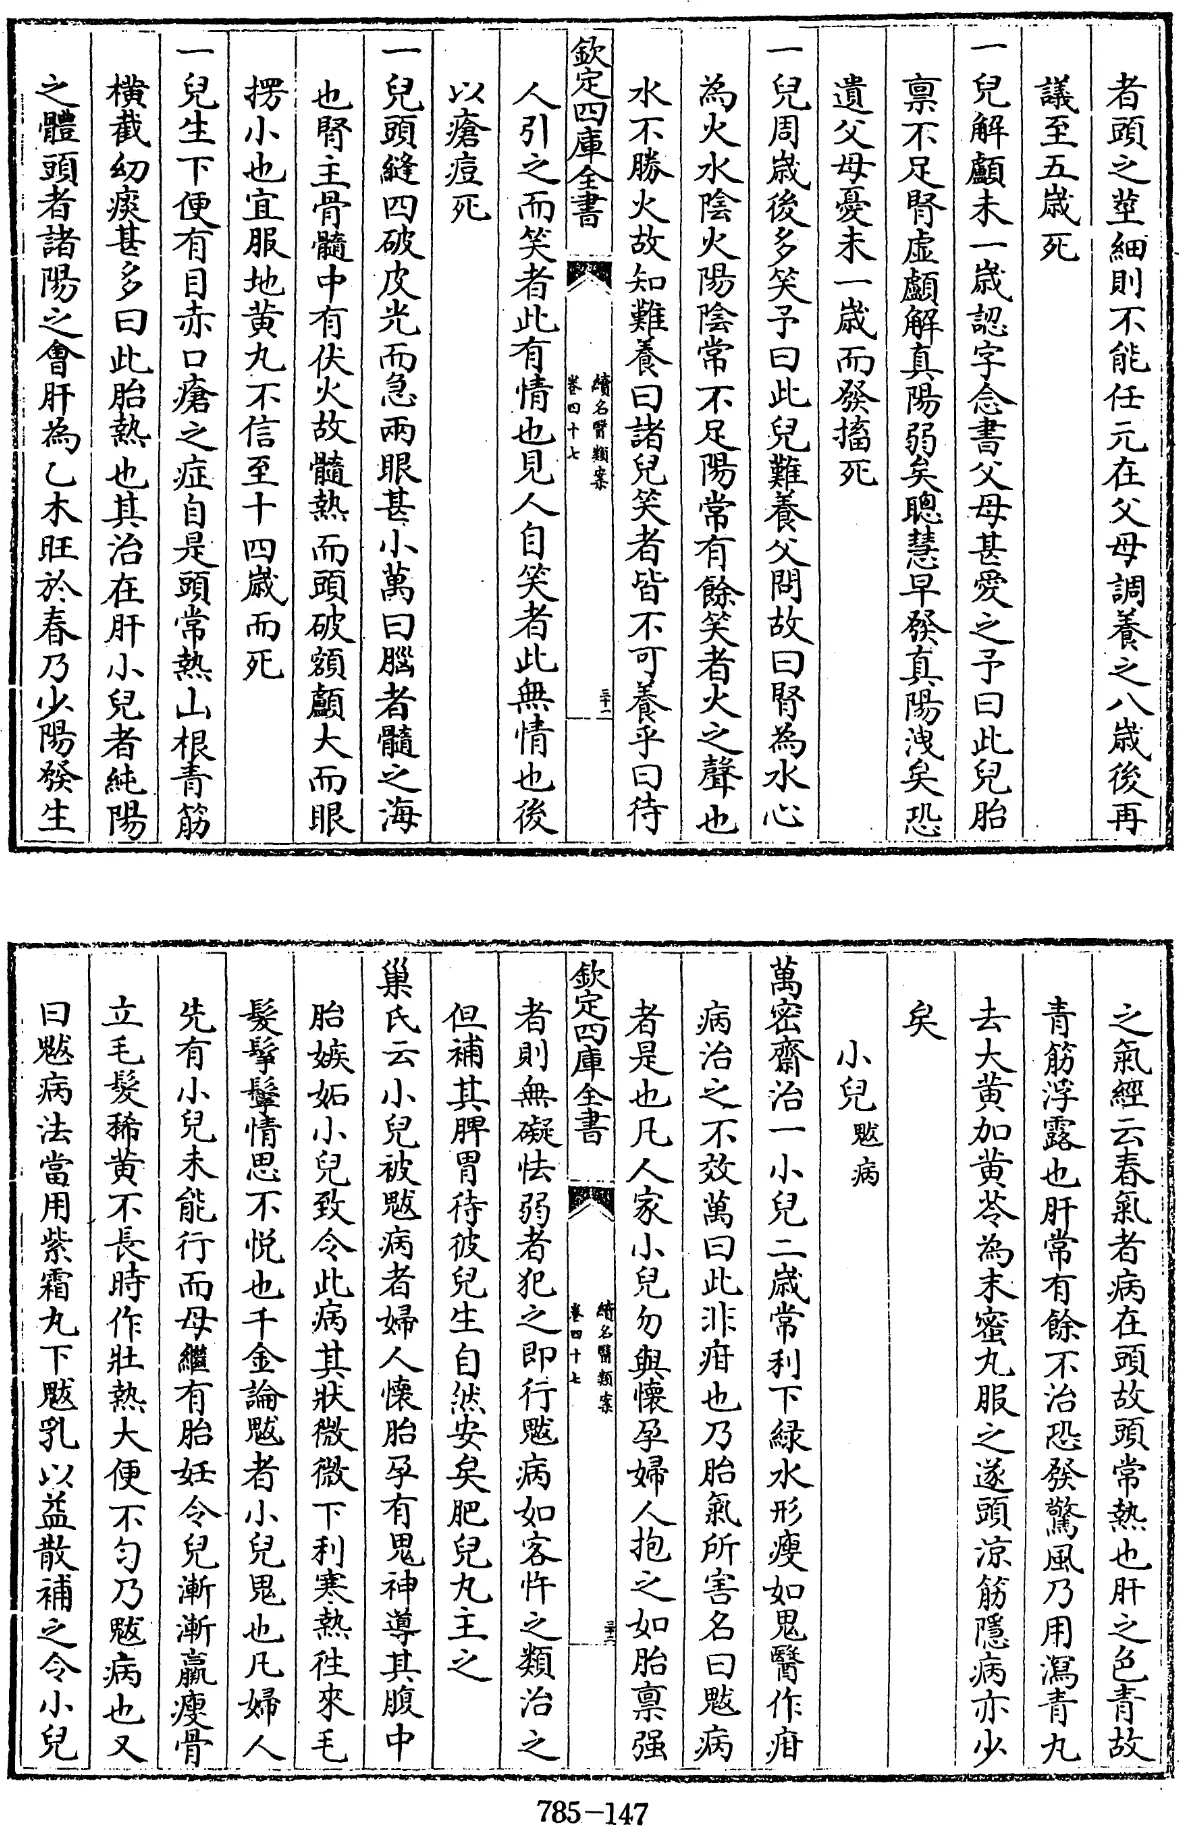 者頭之莖細則不能任元在父母調養之八歲後再
議至五歲死
一兒解顱未一歲認字念書父母甚愛之予曰此兒胎
禀不足腎虚顱解真陽弱矣聰慧早發真陽洩矣恐
遺父母憂未一歲而發搐死
一兒周歲後多笑予曰此兒難養父問故曰腎為水心
為火水陰火陽陰常不足陽常有餘笑者火之聲也
水不勝火故知難養曰諸兒笑者皆不可養乎曰待
欽定四庫全書
續名醫類案
卷四十七
三十一
人引之而笑者此有情也見人自笑者此無情也後
以瘡痘死
一兒頭縫四破皮光而急兩眼甚小萬曰腦者髓之海
也腎主骨髓中有伏火故髓熱而頭破額顱大而眼
楞小也宜服地黄丸不信至十四歲而死
一兒生下便有目赤口瘡之症自是頭常熱山根青筋
横截幼痰甚多曰此胎熱也其治在肝小兒者純陽
之體頭者諸陽之會肝為乙木旺於春乃少陽發生
之氣經云春氣者病在頭故頭常熱也肝之色青故
青筋浮露也肝常有餘不治恐發驚風乃用瀉青丸
去大黄加黄芩為末蜜丸服之遂頭涼筋隱病亦少
矣
小兒魃病
萬密齋治一小兒二歲常利下緑水形瘦如鬼醫作疳
病治之不效萬曰此非疳也乃胎氣所害名曰魃病
者是也凡人家小兒勿與懷孕婦人抱之如胎禀强
欽定四庫全書
續名醫類案
卷四十七
三十二
者則無礙怯弱者犯之即行魃病如客忤之類治之
但補其脾胃待彼兒生自然安矣肥兒丸主之
巢氏云小兒被魃病者婦人懷胎孕有鬼神導其腹中
胎嫉妬小兒致令此病其狀微微下利寒熱往來毛
髮鬡鬇情思不悅也千金論魃者小兒鬼也凡婦人
先有小兒未能行而母繼有胎妊令兒漸漸羸瘦骨
立毛髮稀黄不長時作壯熱大便不匀乃魃病也又
曰魃病法當用紫霜丸下魃乳以益散補之令小兒
785-147